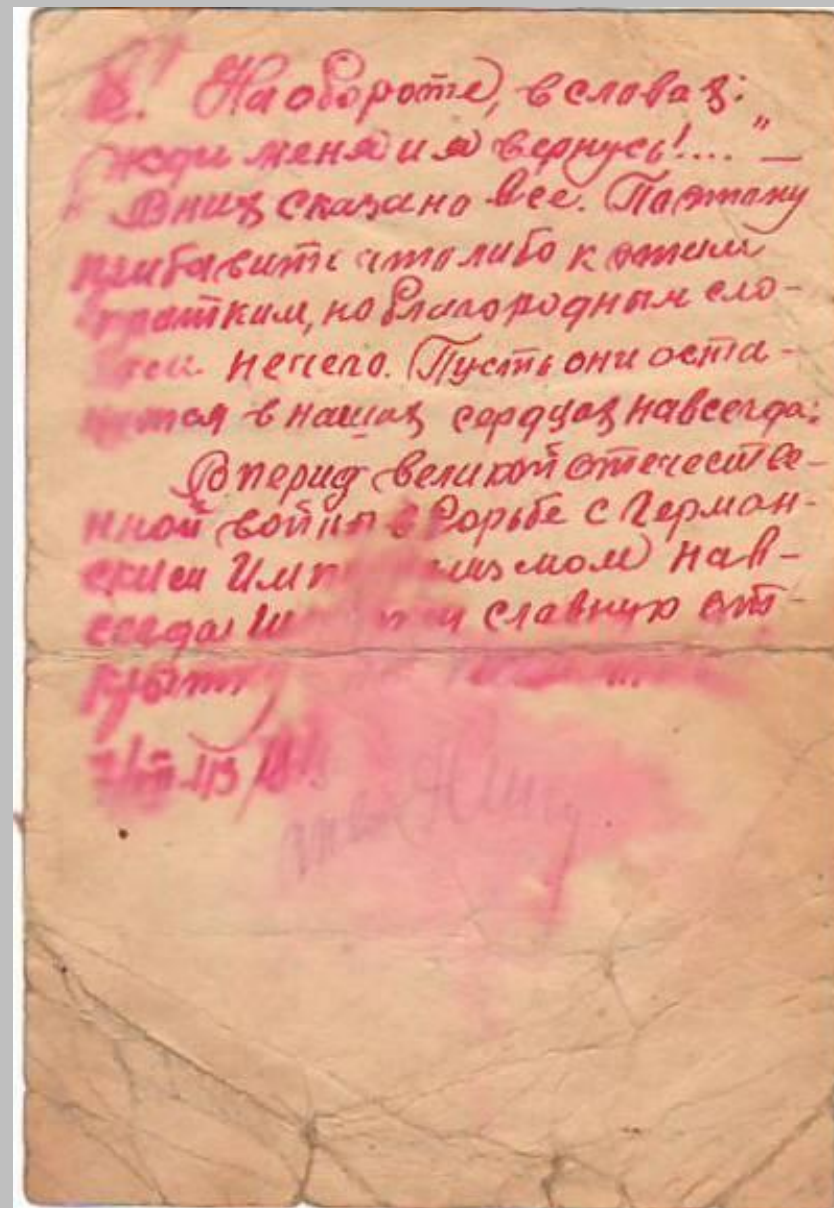 На обороте, в словах:
"жди меня и я вернусь!...." –
В них сказано все. Поэтому
прибавить что либо к этим
кратким, но благородным сло-
вам нечего. Пусть они оста-
нутся в наших сердцах навсегда:
В перид великой отечестве-
нной войны в борьбе с Герман-
ским Империализмом нав-
сегда славную от-
крытку